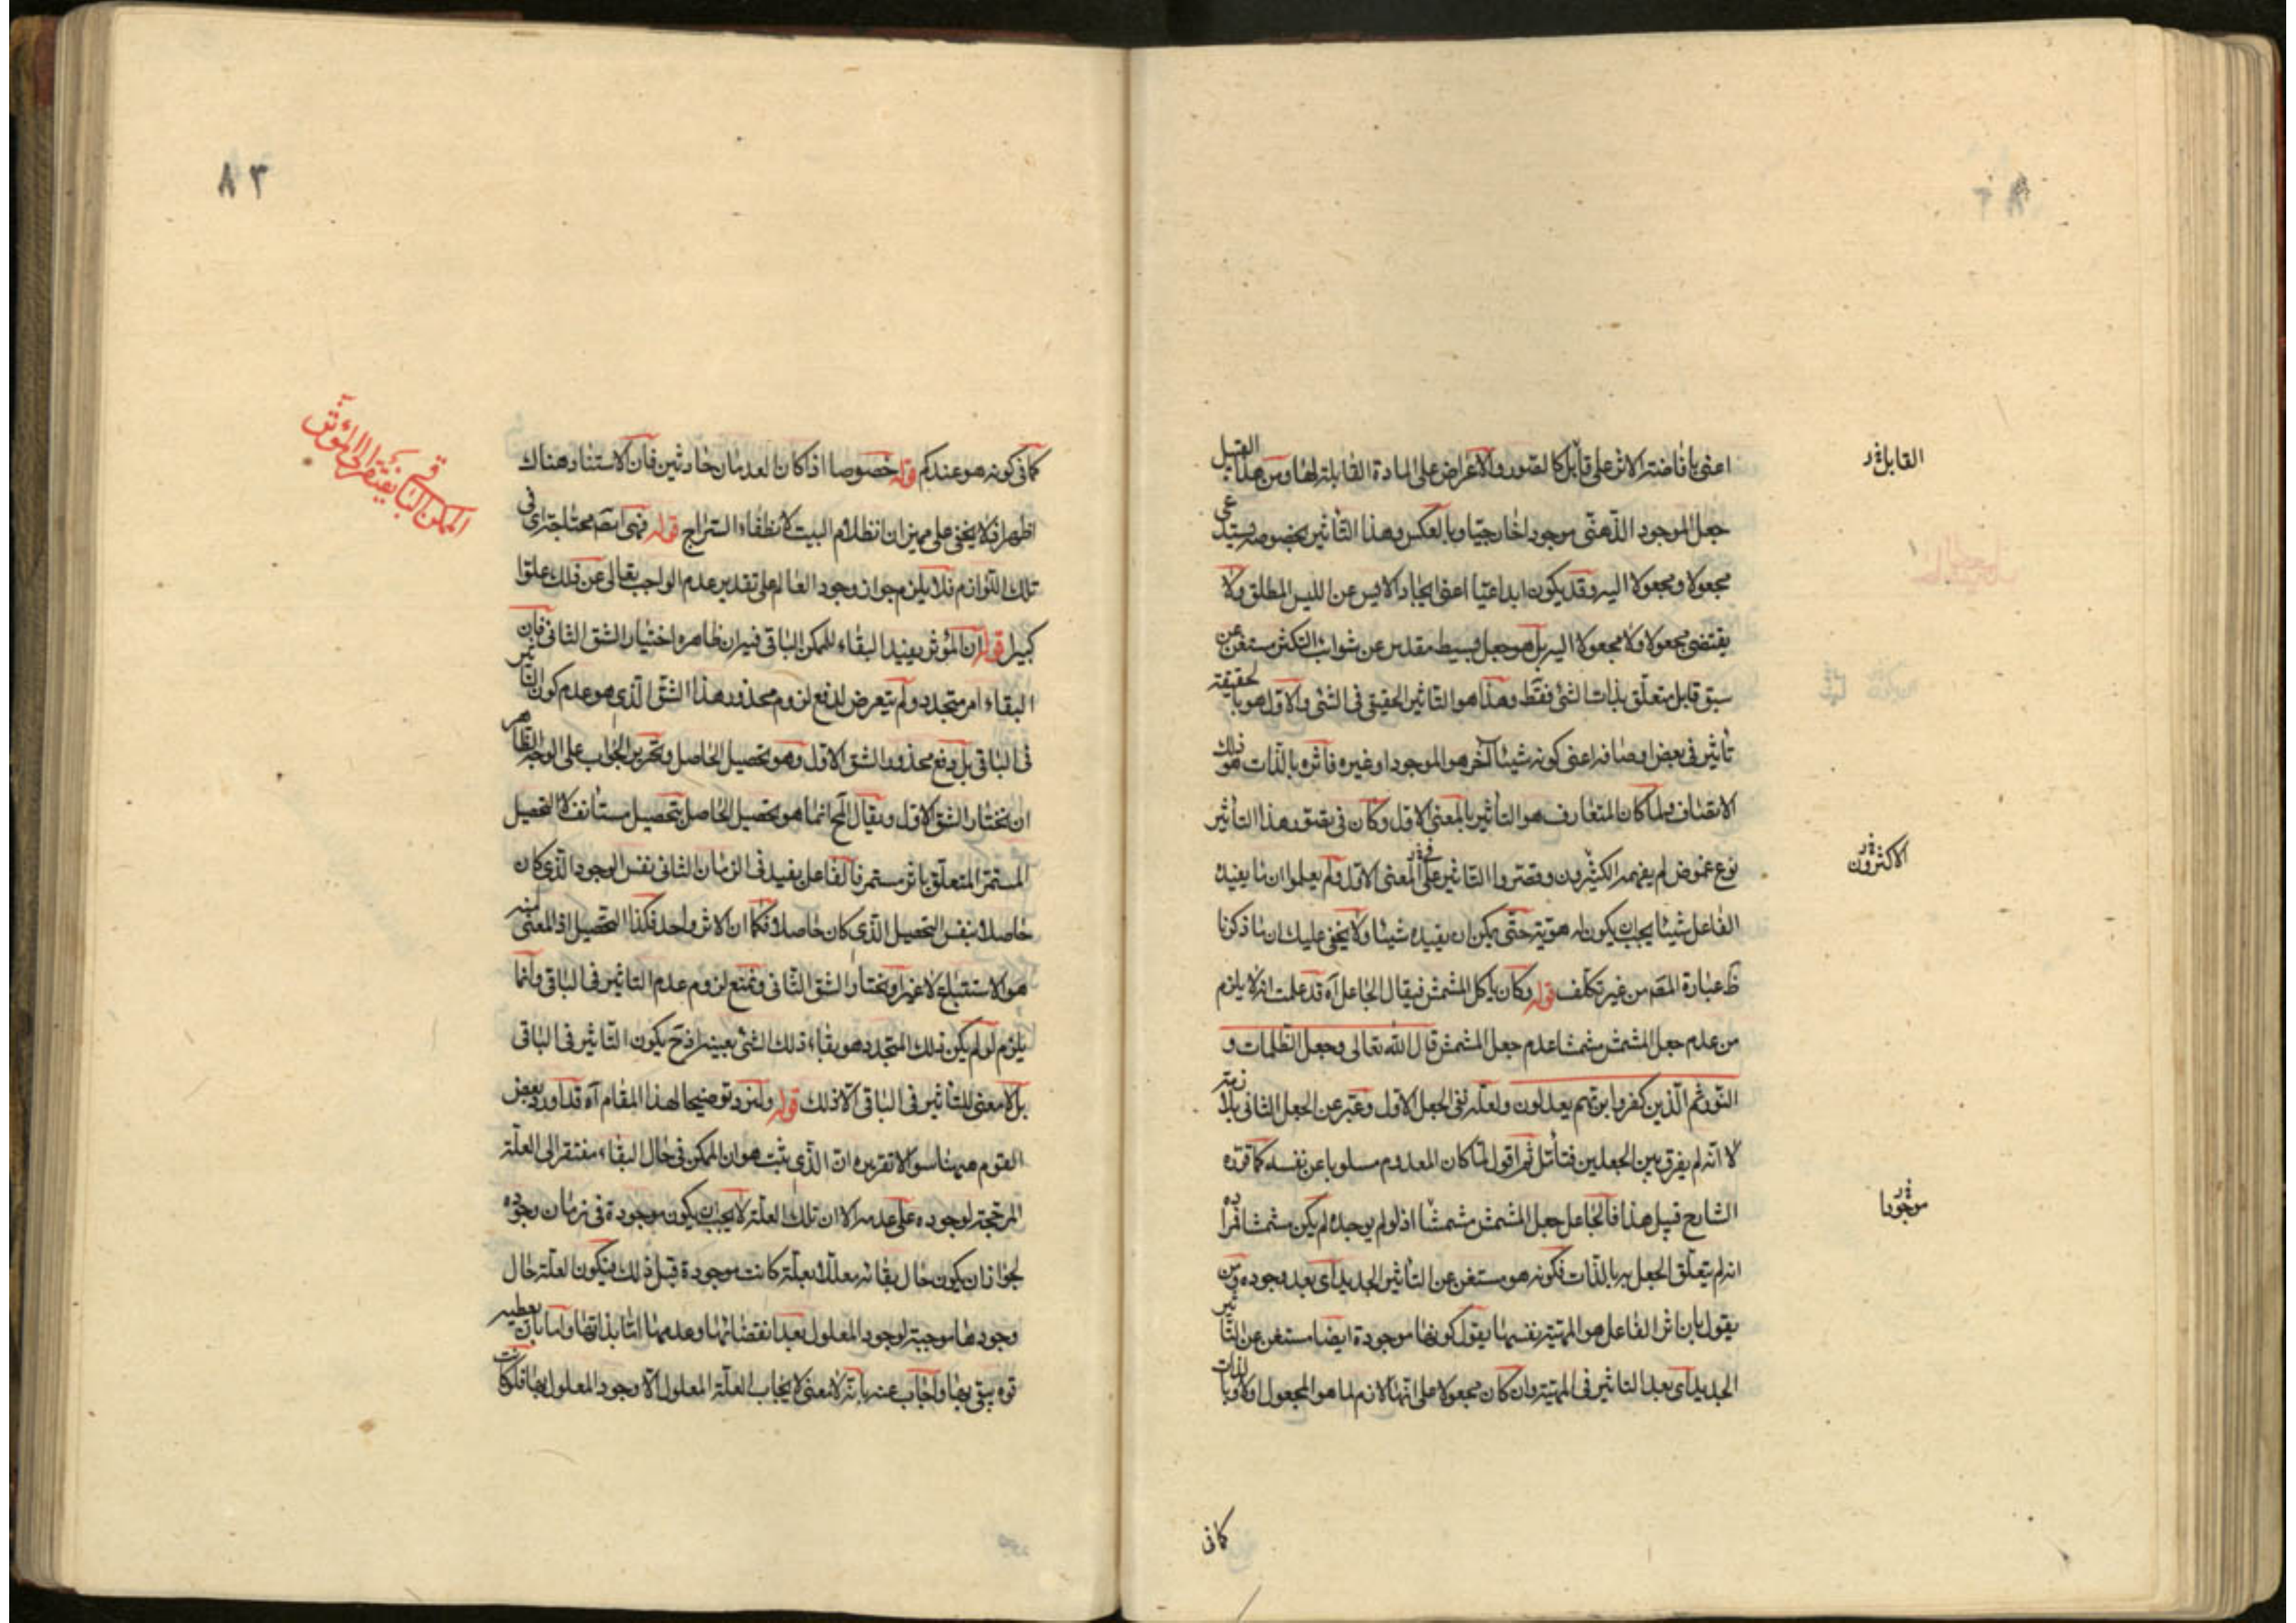 اعنى بافاضة الاثر على قابل كالصور والاعراض على المادة القابلة لها ومن هذا القبيل
جعل الموجود الذهنى موجودا خارجيا وبالعكس وهذا التأثير بخصوصه يستدعى
مجعولا ومجعولا اليه وقد يكون ابداعيا اعنى ايجاد الايس عن الليس المطلق ولا
يقتضى مجعولا ولا مجعولا اليه بل هو جعل بسيط مقدس عن شوائب التكثر مستغن عن
سبق قابل متعلق بذات الشئ فقط وهذا هو التأثير الحقيقى فى الشئ والاول هو بالحقيقة
تأثير فى بعض اوصافه اعنى كونه شيئا آخر هو الموجود او غيره فاثره بالذات هو ذلك
الاتصاف ولما كان المتعارف هو التأثير بالمعنى الاول وكان فى تصور هذا التأثير
نوع غموض لم يفهمه الكثيرون وقصروا التاثير على المعنى الاول ولم يعلموا ان ما يفيده
الفاعل شيئا يجب ان يكون له هوية حتى يمكن ان يفيده شيئا ولا يخفى عليك ان ما ذكرنا
ظ عبارة المصه من غير تكلف قوله وكان يأكل المشمش فيقال الجاعل آه قد علمت انه لا يلزم
من عدم جعل المشمش مشمشا عدم جعل المشمش قال الله تعالى وجعل الظلمات و
النور ثم الذين كفروا بربهم يعدلون ولعله نفى الجعل الاول وعبر عن الجعل الثانى بلازمه
لا انه لم يفرق بين الجعلين فتأمل ثم اقول لما كان المعدوم مسلوبا عن نفسه كما قرره
الشارح قبيل هذا فالجاعل جعل المشمش مشمشا اذ لو لم يوجده لم يكن مشمشا فمراده
انه لم يتعلق الجعل به بالذات فكونه هو مستغن عن التأثير الجديد اى بعد وجوده ومن
يقول بان اثر الفاعل هو المهية نفسها يقول كونها موجودة ايضا مستغن عن التأثير
الجديد اى بعد التاثير فى المهية وان كان مجعولا على انها لازم لما هو المجعول اولا وبالذات
كافى
القابل
الاكثرون
موجودا
٨٣
كما فى كونه هو عندكم قوله خصوصا اذا كان العدمان حادثين فان الاستناد هناك
اظهر اذ لا يخفى على مميز ان انظلام البيت لانطفاء السراج قوله فهى ايضه محتاجة اى فى
تلك اللوازم فلا يلزم جواز وجود العالم على تقدير عدم الواجب تعالى عن ذلك علوا
كبيرا قوله ان المؤثر يفيد البقاء للممكن الباقى فيه ان ظاهره اختيار الشق الثانى فان
البقاء امر متجدد ولم يتعرض لدفع لزوم محذور هذا الشق الذى هو عدم كون التاثير
فى الباقى بل دفع محذور الشق الاول وهو تحصيل الحاصل وتحرير الجواب على الوجه الظاهر
ان نختار الشق الاول ويقال المح انما هو تحصيل الحاصل بتحصيل مستأنف لا التحصيل
المستمر المتعلق باثر مستمر فالفاعل يفيد فى الزمان الثانى نفس الوجود الذى كان
حاصلا بنفس التحصيل الذى كان حاصلا فكما ان الاثر واحد فكذا التحصيل اذ المعنى منه
هو الاستتباع لا غير او نختار الشق الثانى ونمنع لزوم عدم التاثير فى الباقى وانما
يلزم لو لم يكن ذلك المتجدد هو بقاء ذلك الشئ بعينه اذ ح يكون التاثير فى الباقى
بل لا معنى للتأثير فى الباقى الا ذلك قوله ولنزد توضيحا لهذا المقام آه قد اورد بعض
القوم ههنا سوالا تقريره ان الذى يثبت هو ان الممكن فى حال البقاء مفتقر الى العلة
المرجحة لوجوده على عدمه الا ان تلك العلة لا يجب ان يكون موجودة فى زمان وجوده
لجواز ان يكون حال بقائه معللا بعلة كانت موجودة قبل ذلك فيكون العلة حال
وجودها موجبة لوجود المعلول بعد انقضائها وعدمها اما بذاتها واما بان يعطيه
قوة يبقى بها واجاب عنه بانه لا معنى لايجاب العلة المعلول الا وجود المعلول بها فلو كانت
الممكن الباقى يفتقر الى المؤثر